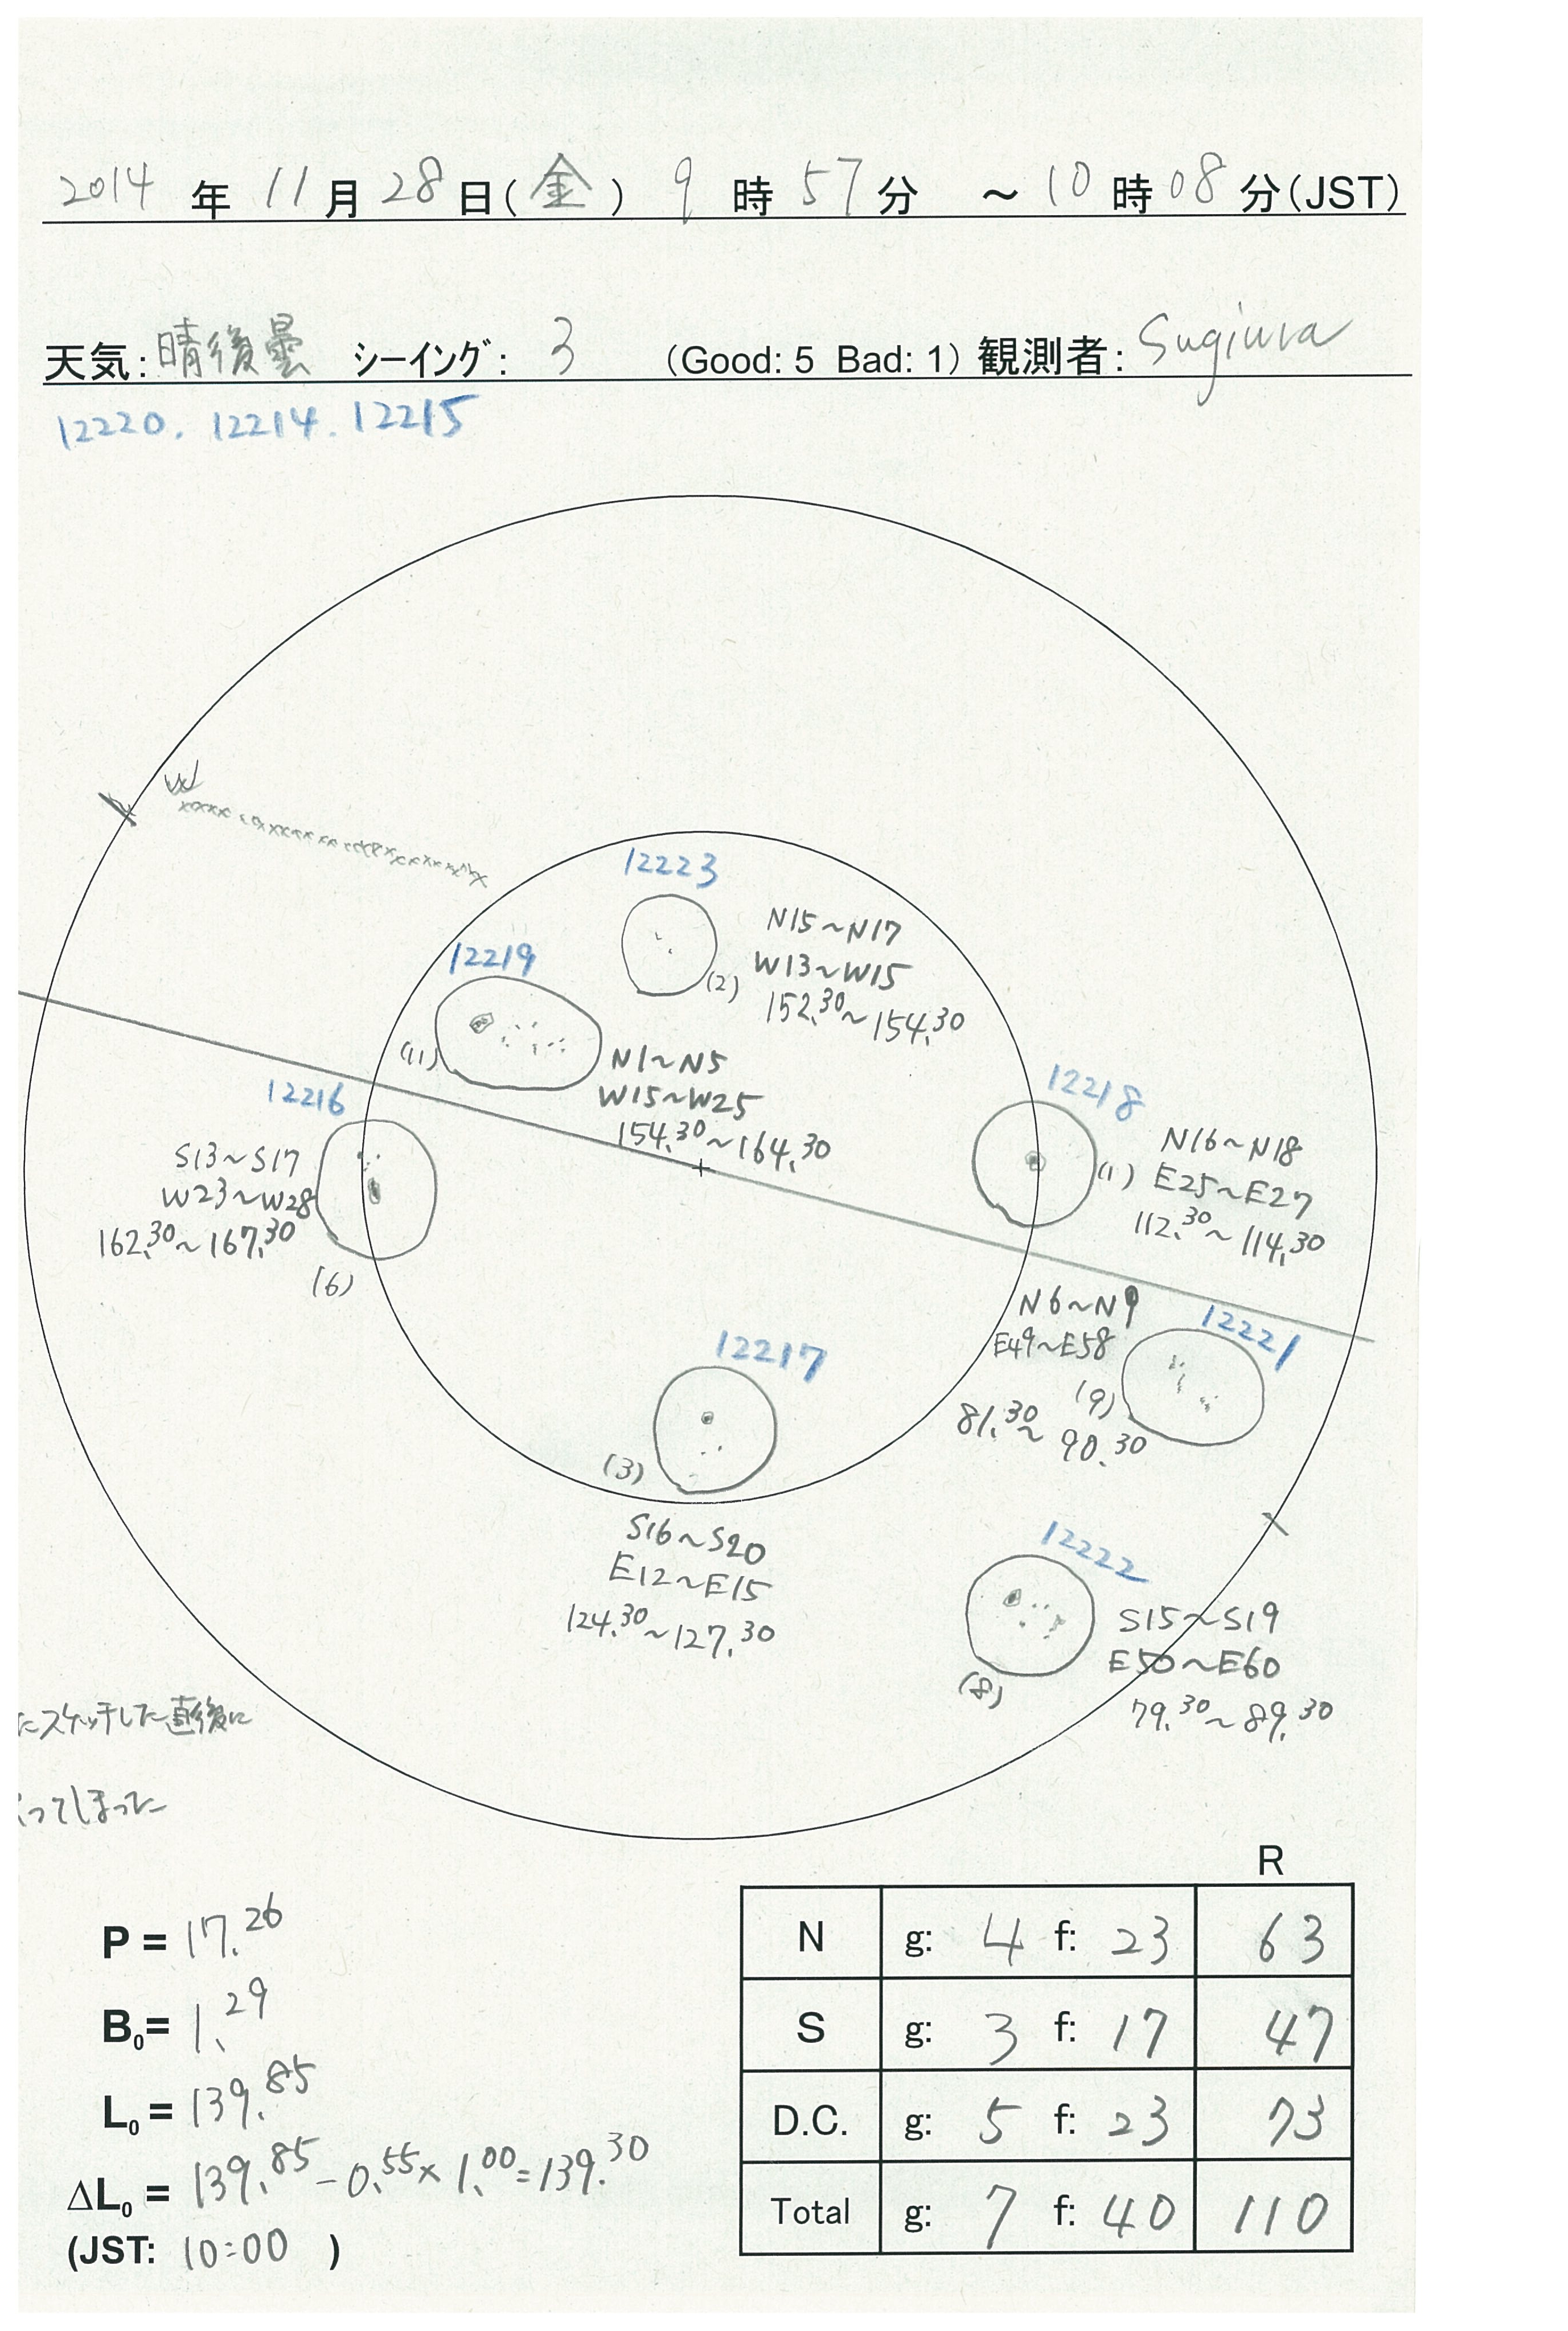 2014年 11月28日(金) 9時57分 ～10時08分(JST)
天気:晴後曇 シーイング: 3 (Good: 5 Bad: 1) 観測者: Sugiura
12220. 12214. 12215
W
12223
N15~N17
W13~W15
(2)
152.30~154.30
12219
(11)
N1~N5
W15~W25
154.30~164.30
12216
S13~S17
W23~W28
162.30~167.30
(6)
12218
(1)
N16~N18
E25~E27
112.30~114.30
N6~N9
12221
E49~E58
(9)
81.30~90.30
12217
(3)
S16~S20
E12~E15
124.30~127.30
12222
S15~S19
E50~E60
(8)
79.30~89.30
たスケッチした直後に
ってしまった
P = 17.26
B0= 1.29
L0 = 139.85
ΔL0 = 139.85-0.55×1.00=139.30
(JST: 10:00 )
R
N g: 4 f: 23 63
S g: 3 f: 17 47
D.C. g: 5 f: 23 73
Total g: 7 f: 40 110